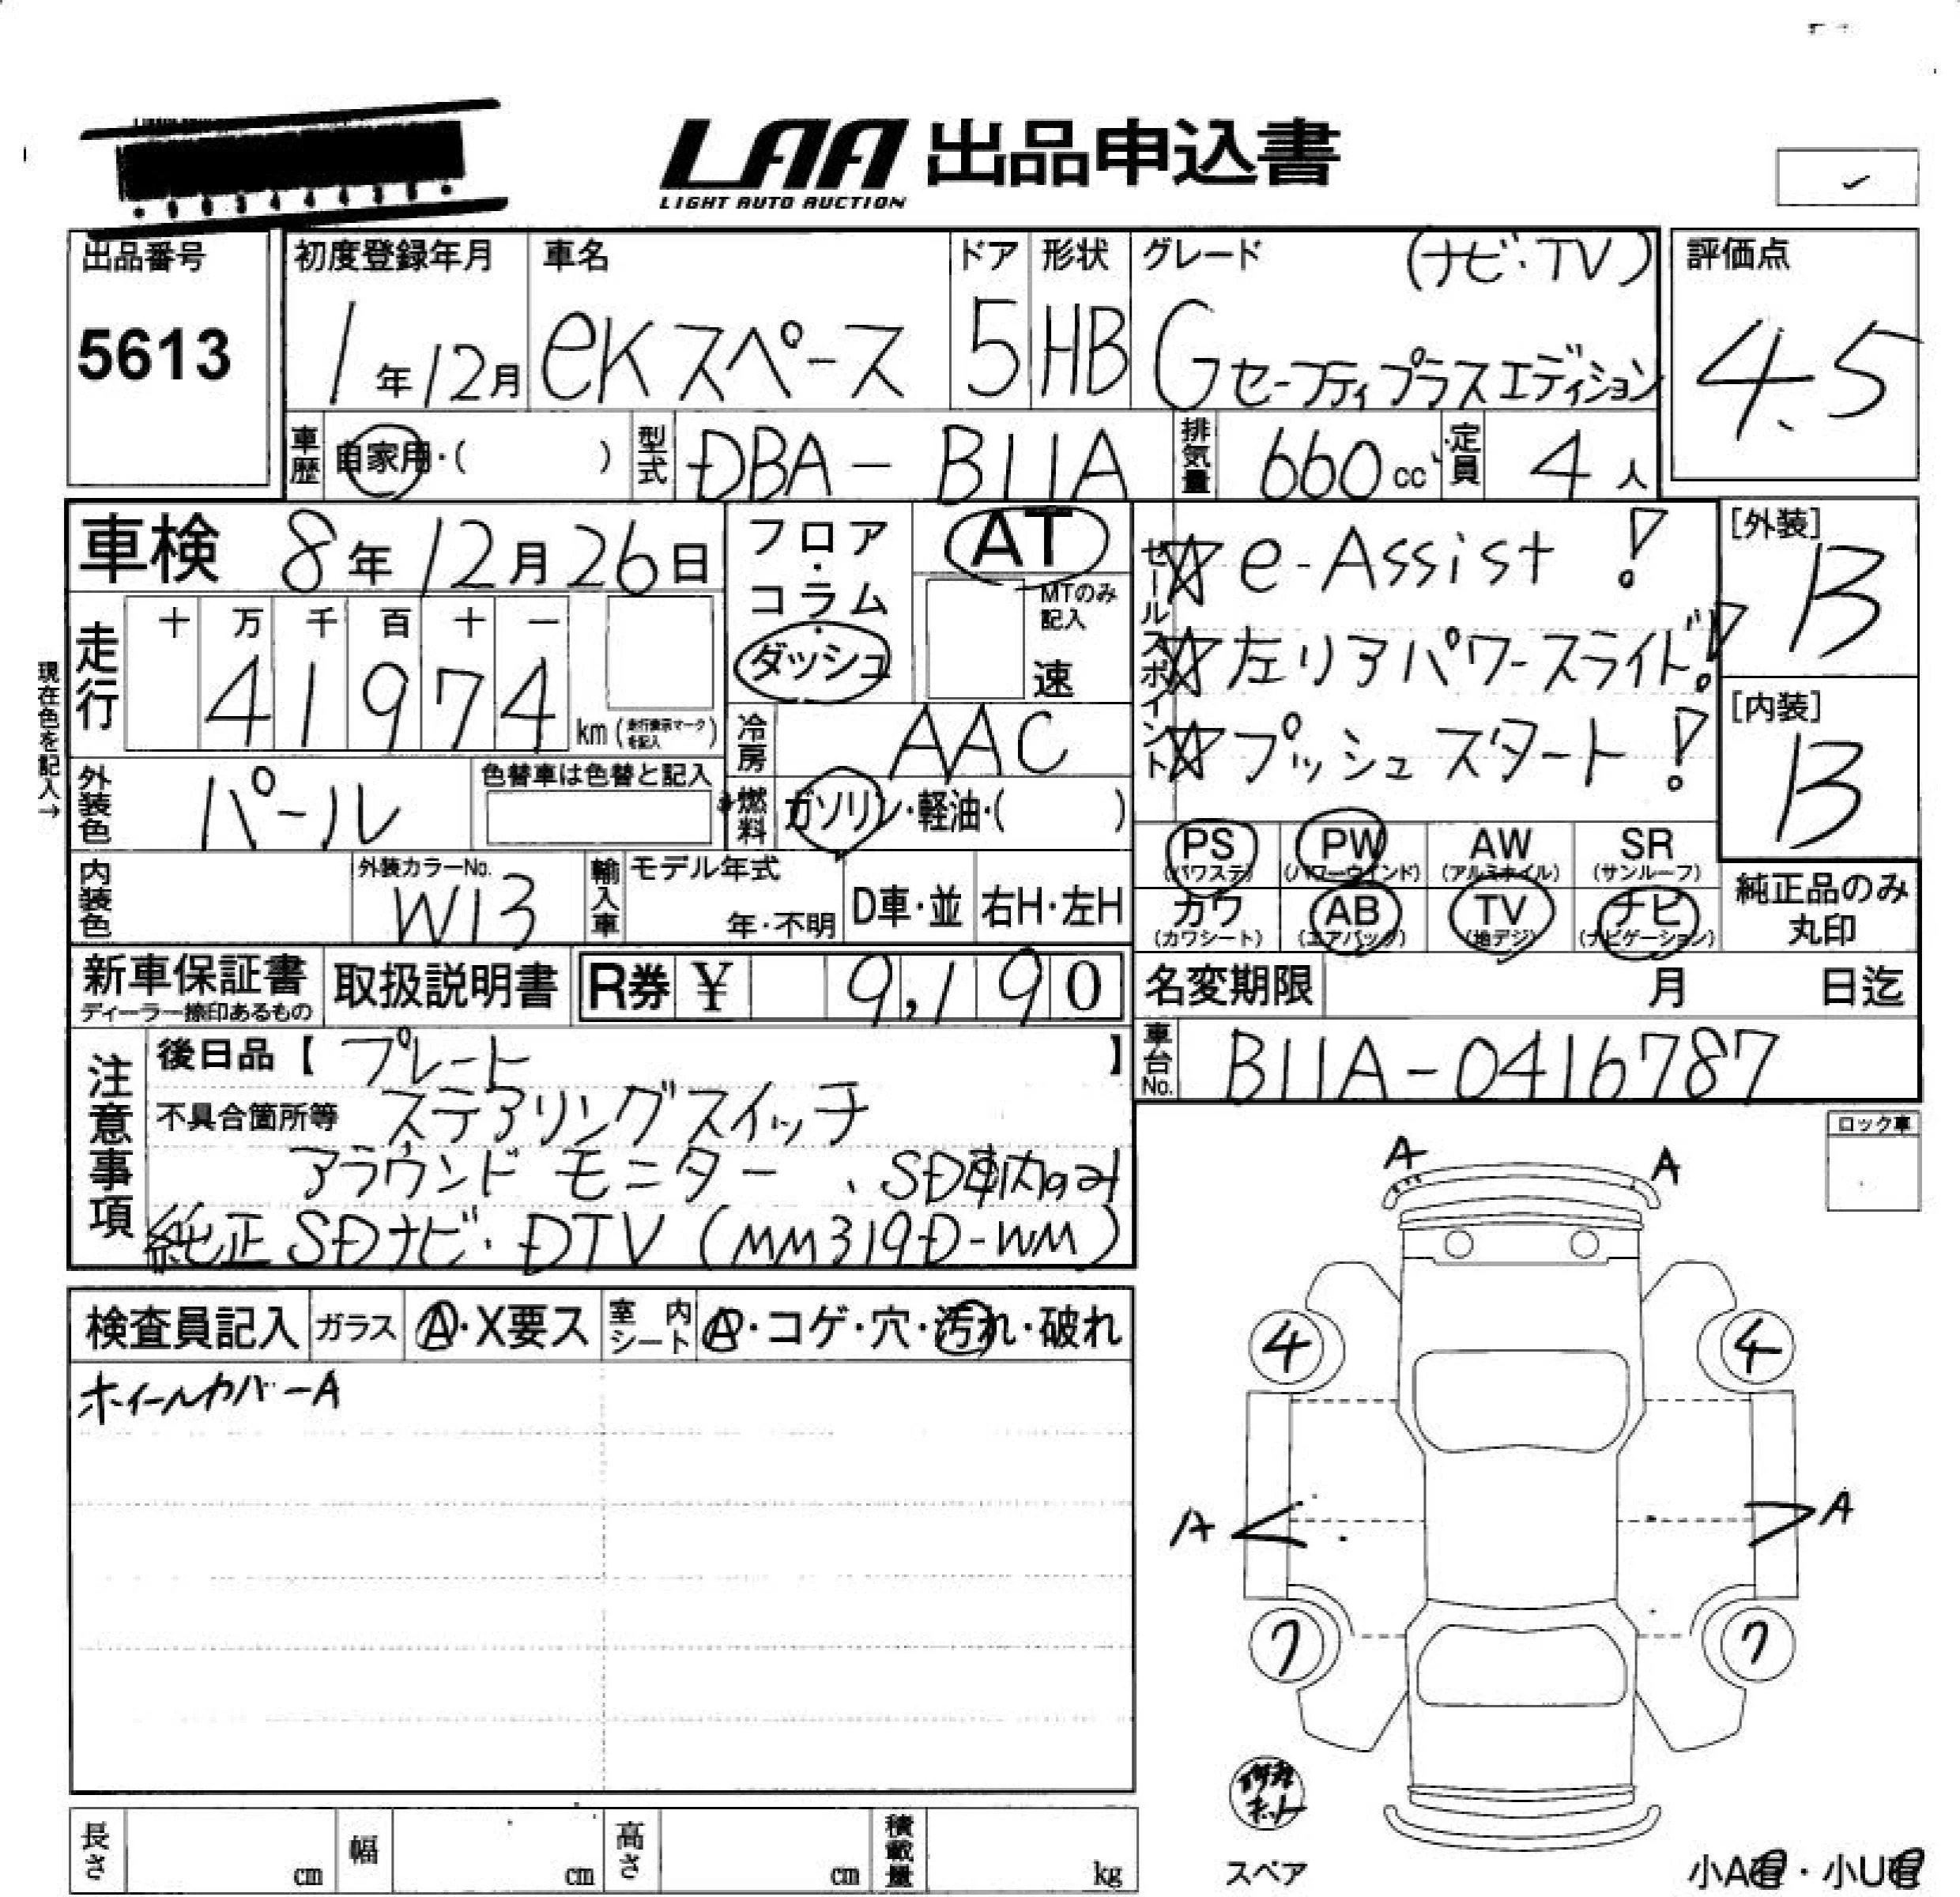 LAA 出品申込書
LIGHT AUTO AUCTION
出品番号
5613
初度登録年月
1年12月
車名
eKスペース
ドア
5
形状
HB
グレード (ナビ・TV)
Gセーフティプラスエディション
評価点
4.5
車歴 自家用・( )
型式 DBA-B11A
排気量 660cc
定員 4人
車検 8年12月26日
フロア・コラム・ダッシュ
AT
MTのみ記入
速
セールスポイント
☆e-Assist!
☆左リアパワースライド!
☆プッシュスタート!
[外装]
B
[内装]
B
現在色を記入→
走行 十 万 千 百 十 一
41974 km (走行表示マークを記入)
冷房 AAC
外装色 パール
色替車は色替と記入
燃料 ガソリン・軽油・( )
PS (パワステ)
PW (パワーウインド)
AW (アルミホイル)
SR (サンルーフ)
カワ (カワシート)
AB (エアバック)
TV (地デジ)
ナビ (ナビゲーション)
純正品のみ丸印
内装色
外装カラーNo. W13
輸入車
モデル年式
年・不明
D車・並
右H・左H
新車保証書
ディーラー捺印あるもの
取扱説明書
R券 ¥ 9,190
名変期限 月 日迄
車台No. B11A-0416787
注意事項
後日品【 プレート 】
不具合箇所等 ステアリングスイッチ
アラウンドモニター、SD車内のみ
純正SDナビ・DTV(MM319D-WM)
ロック車
A A
検査員記入
ガラス A・X要ス
室内シート A・コゲ・穴・汚れ・破れ
ホイールカバーA
4 4
A A
7 7
スペア
長さ cm
幅 cm
高さ cm
積載量 kg
小A有・小U有